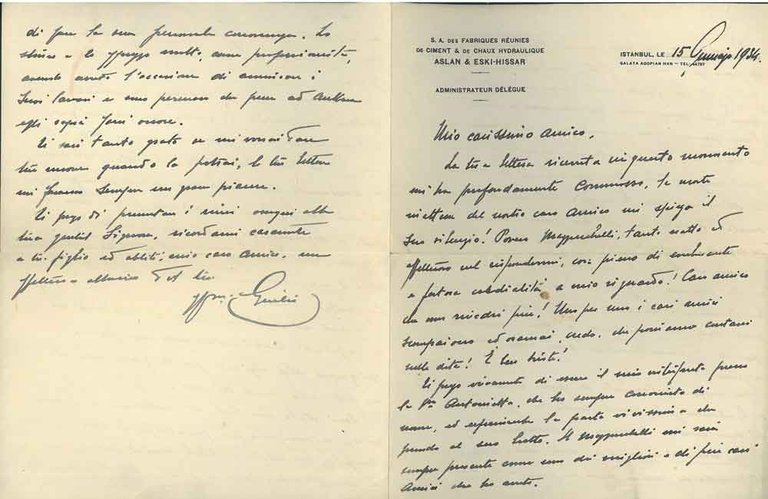 S. A. DES FABRIQUES RÉUNIES
DE CIMENT & DE CHAUX HYDRAULIQUE
ASLAN & ESKI-HISSAR
ADMINISTRATEUR DÉLÉGUE
ISTANBUL, LE 15 Gennaio 1934.
GALATA AGOPIAN HAN — TEL.
Mio carissimo amico,
La tua lettera ricevuta in questo momento
mi ha profondamente commosso, la morte
del nostro caro amico mi spiega il
suo silenzio! Povero tanto esatto ed
affettuoso nel rispondermi, così pieno di
e cordialità a mio riguardo! Caro amico
che non rivedrò più! Uno per uno i cari amici
scompaiono ed oramai, credo, che possiamo contarli
sulle dita! È ben triste!
Ti prego vivamente di essere il mio interprete presso
la Sra Antonietta, che ho sempre conosciuta di
nome, ed esprimerle la parte vivissima che
prendo al suo lutto. Il mi sarà
sempre presente come uno dei migliori e di più cari
amici che ho avuto.
di fare la sua personale conoscenza. Lo
stimo e lo molto, come professionista,
avendo avuto l'occasione di ammirare i
suoi lavori e sono persuaso che pure ad Ankara
egli saprà farsi onore.
Ti sarò tanto grato se mi vorrai dare
tue nuove quando lo potrai, le tue lettere
mi fanno sempre un gran piacere.
Ti prego di presentare i miei omaggi alla
tua gentil Signora, ricordami
a tuo figlio ed abbiti, mio caro amico, un
affettuoso abbraccio dal tuo
Giulio